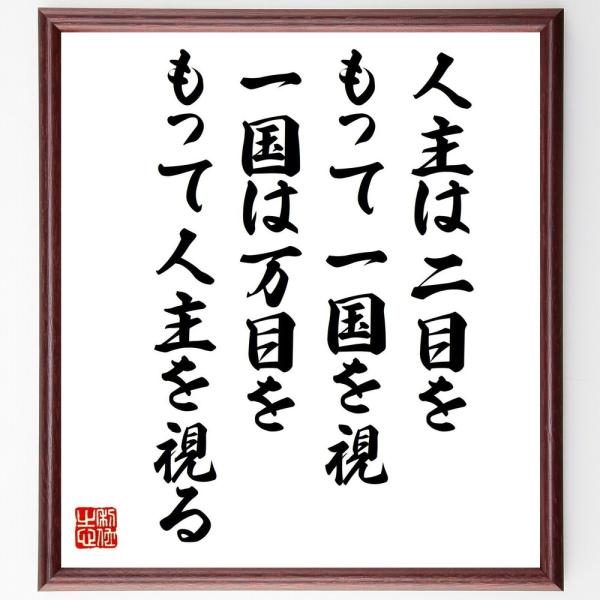 人主は二目を
もって一国を視
一国は万目を
もって人主を視る